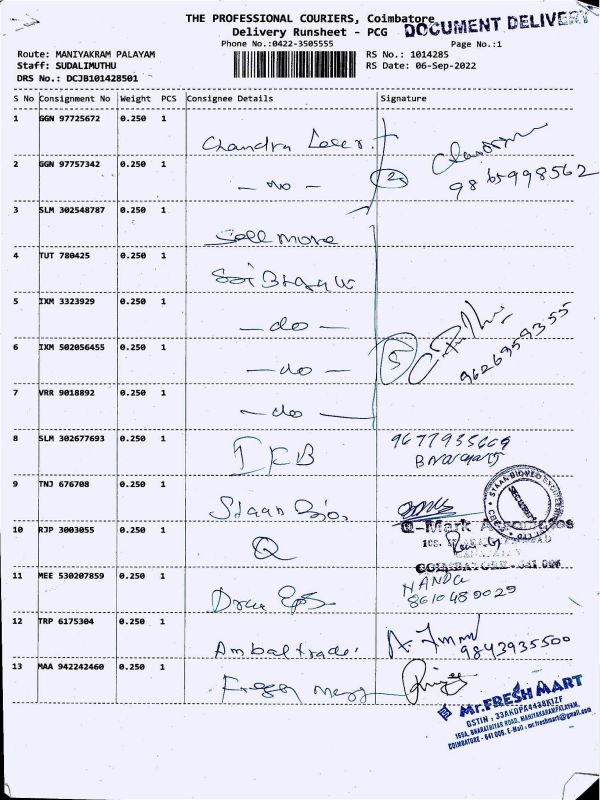 THE PROFESSIONAL COURIERS, Coimbatore
DOCUMENT DELIVERY
Delivery Runsheet - PCG
Phone No.:0422-3505555
Page No.:1
Route: MANIYAKRAM PALAYAM
RS No.: 1014285
Staff: SUDALIMUTHU
RS Date: 06-Sep-2022
DRS No.: DCJB101428501
S No Consignment No Weight PCS Consignee Details Signature
1 GGN 97725672 0.250 1
Chandra Laser.
2 GGN 97757342 0.250 1
- do -
2
9865998562
3 SLM 302548787 0.250 1
Sell more
4 TUT 780425 0.250 1
Sai
5 IXM 3323929 0.250 1
- do -
6 IXM 502056455 0.250 1
- do -
5
9626959355
7 VRR 9018892 0.250 1
- do -
8 SLM 302677693 0.250 1
9677935609
9 TNJ 676708 0.250 1
Staan Bio.
10 RJP 3003055 0.250 1
Q
Q-Mark Associates
COIMBATORE - 641 006
11 MEE 530207859 0.250 1
NANDA
8610489029
12 TRP 6175304 0.250 1
Ambal trade
9843935500
13 MAA 942242460 0.250 1
Mr.FRESH MART
GSTIN : 33AKDPA4438K1ZF
165A, BHARATHIYAR ROAD, MANIYAKARAMPALAYAM,
COIMBATORE - 641 006. E-Mail : mr.freshmart@gmail.com